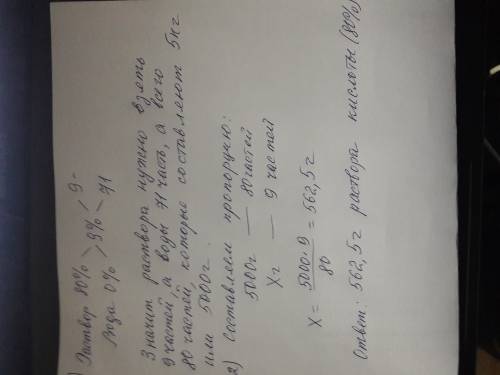 ) Раствор 80% \ / 9 -
9%
Вода 0% / \ 71
Значит раствора нужно взять
9 частей, а воды 71 часть, а всего
80 частей, которые составляют 5кг
или 5000г.
2) Составляем пропорцию:
5000г — 80 частей
Xг — 9 частей
X = 5000·9 / 80 = 562,5г
Ответ: 562,5г раствора кислоты (80%)